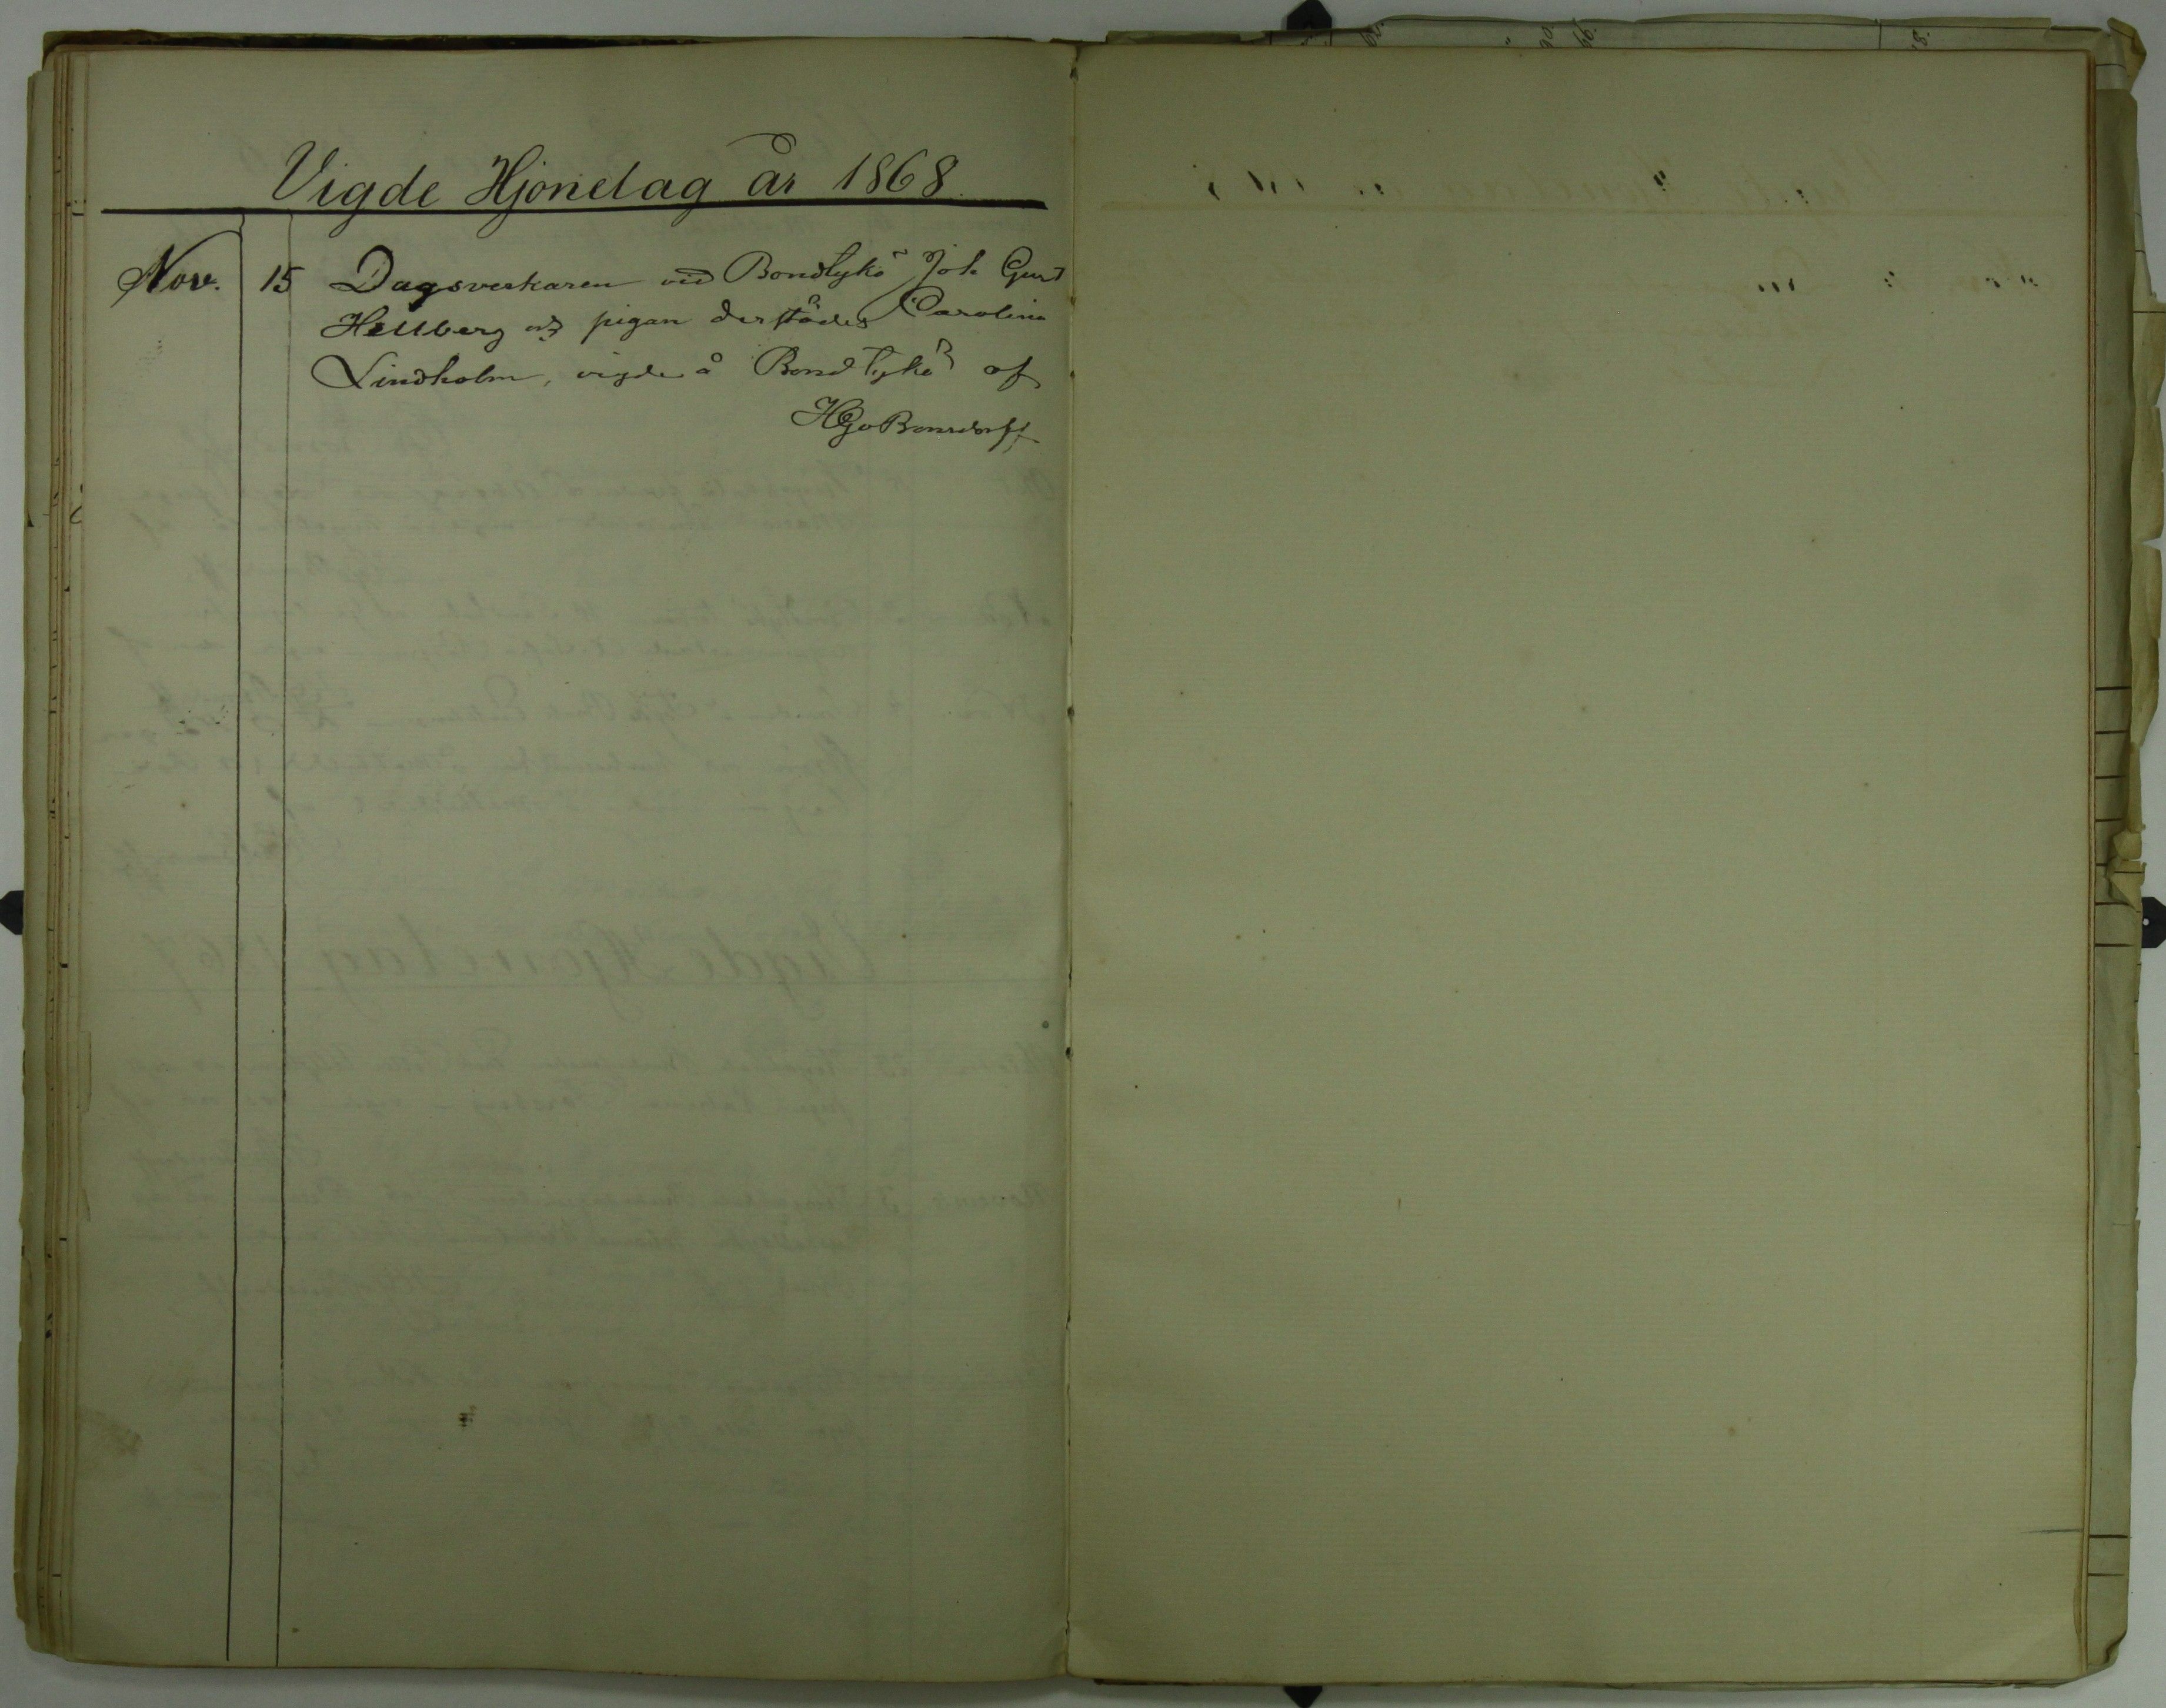 Vigde Hjonelag år 1868.
Nov. 15 Dagsverkaren vid Bondtykö Joh Gust
Hellberg och pigan derstädes Carolina
Lindholm, vigde å Bondtykö af
HGvBonsdorff